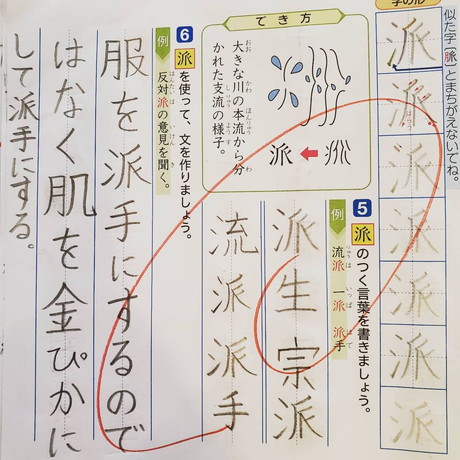 似た字〔脈〕とまちがえないでね。
字の形
派
派
派
派
派
派
派
5 派のつく言葉を書きましょう。
例 流派 一派 派手
派生 宗派
流派 派手
でき方
派
大きな川の本流から分
かれた支流の様子。
6 派を使って、文を作りましょう。
例 反対派の意見を聞く。
服を派手にするので
はなく肌を金ぴかに
して派手にする。